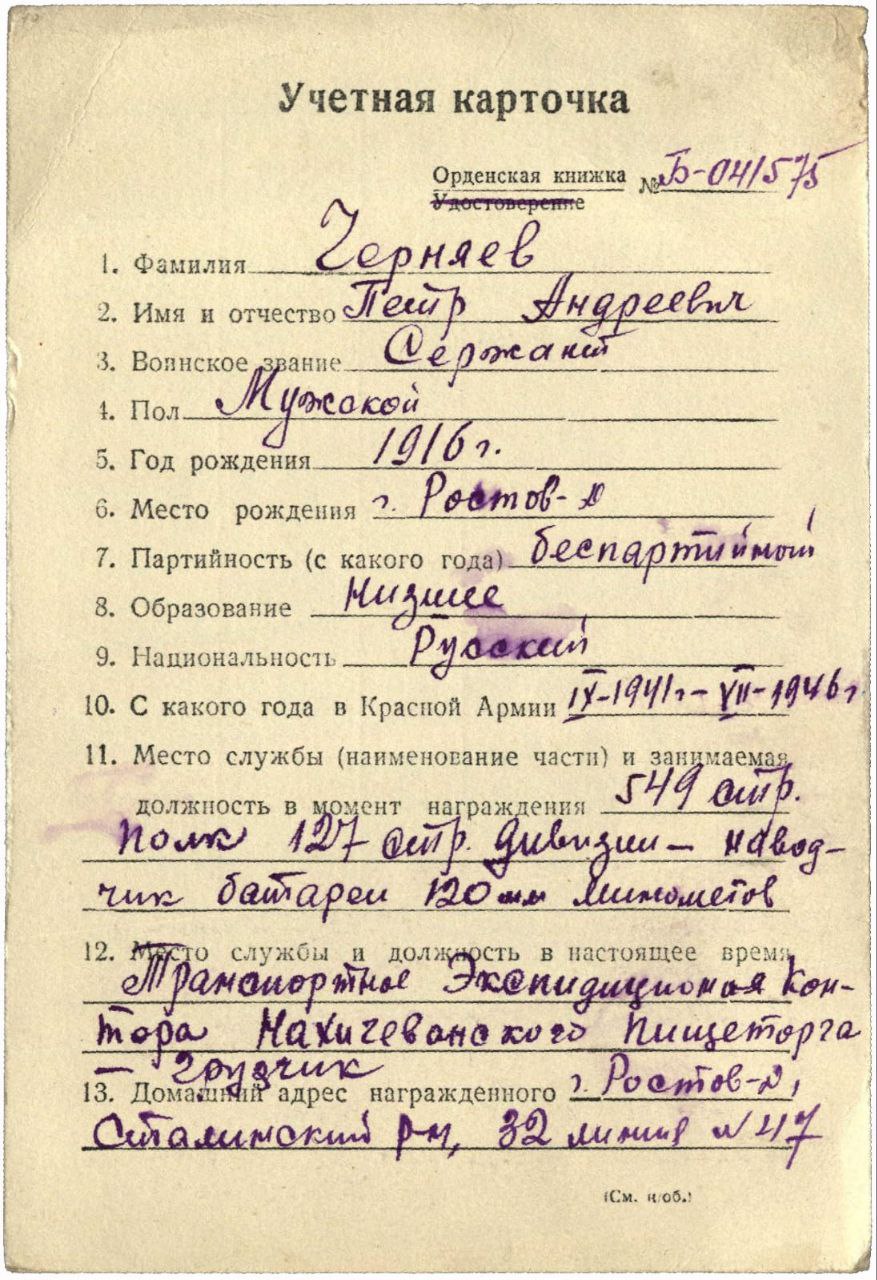 Учетная карточка
Орденская книжка № Б-041575
Удостоверение
1. Фамилия Черняев
2. Имя и отчество Петр Андреевич
3. Воинское звание Сержант
4. Пол Мужской
5. Год рождения 1916 г.
6. Место рождения г. Ростов-Д
7. Партийность (с какого года) беспартийный
8. Образование Низшее
9. Национальность Русский
10. С какого года в Красной Армии IX-1941г-VII-1946г
11. Место службы (наименование части) и занимаемая
должность в момент награждения 549 стр.
полк 127 стр. дивизии - навод-
чик батареи 120 мм минометов
12. Место службы и должность в настоящее время
Транспортное Экспидиционая Кон-
тора Нахичеванского Пищеторга
- грузчик
13. Домашний адрес награжденного г. Ростов-Д,
Сталинский р-н, 32 линия № 47
(См. н/об.)